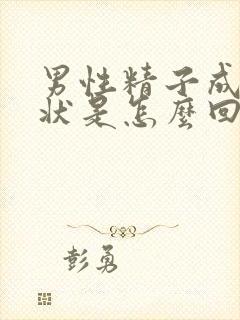 男性精子成
状是怎麼回
彭勇